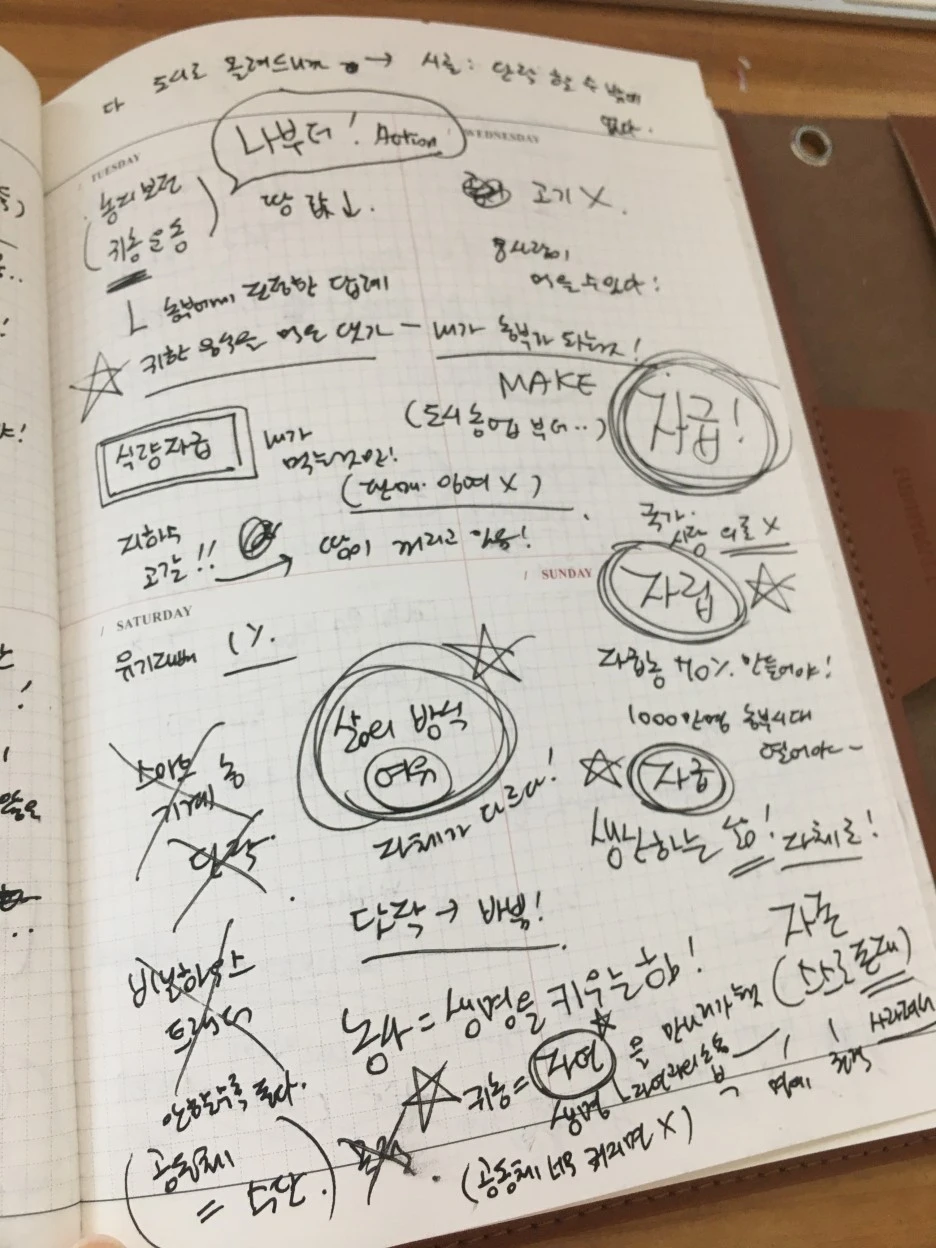 다 도시로 몰려드니까 → 시골 : 단락 할 수 밖에
없다.
나부터! Action
TUESDAY
WEDNESDAY
농지보전
귀농운동
땅값↓.
고기 X.
먹을 수 있다!
농부에게 진정한 답례
☆ 귀한 음식을 먹은 댓가 - 내가 농부가 되는것!
MAKE
(도시농업 부터..)
자급!
식량자급
내가
먹는것만!
(판매. 잉여 X)
국가.
시장 의존 X
지하수
고갈!!
→ 땅이 꺼지고 있음!
SUNDAY
자립 ☆
SATURDAY
유기재배 1%.
자립농 70% 만들어야!
1000만명 농부시대
열어야~
삶의 방식
여유
자체가 다르다!
☆ 자급
생산하는 삶! 자체로!
기계농
단작
단작 → 반복!
비닐하우스
트랙터
안할수록 좋다.
자존
(스스로 존재)
농사 = 생명을 키우는 힘!
☆ 귀농 = 자연 을 만나러가는것
생명
사라져서
(공동체
= 식단.)
(공동체 너무 커지면 X)